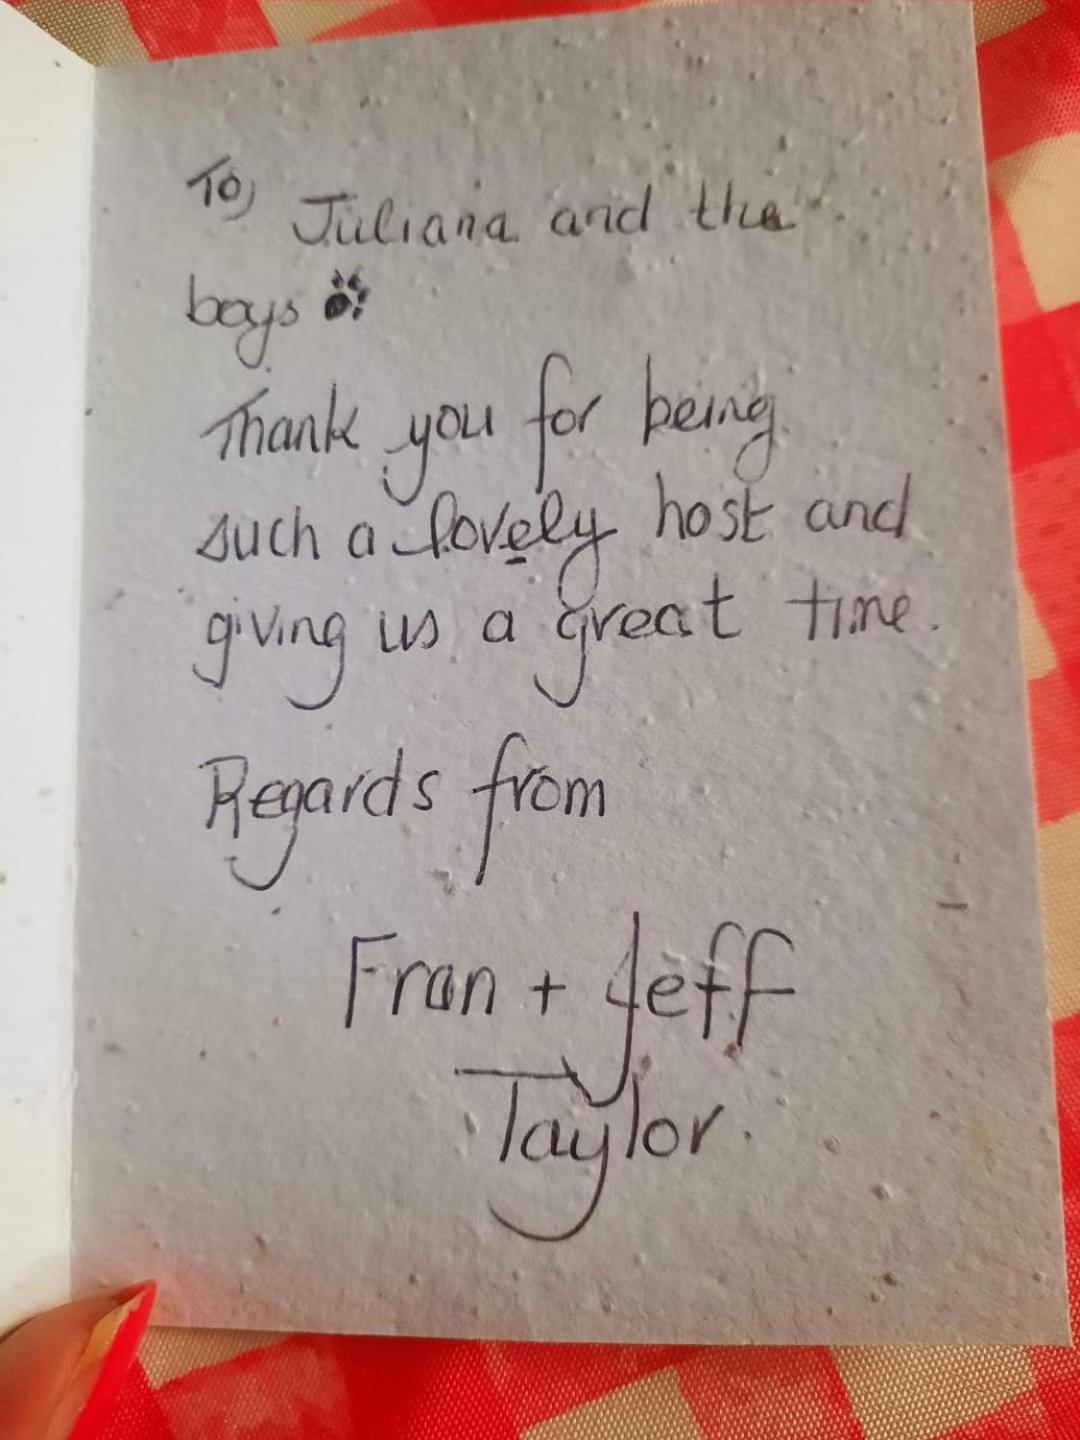 To,
Juliana and the
boys
Thank you for being
such a lovely host and
giving us a great time.
Regards from
Fran + Jeff
Taylor.